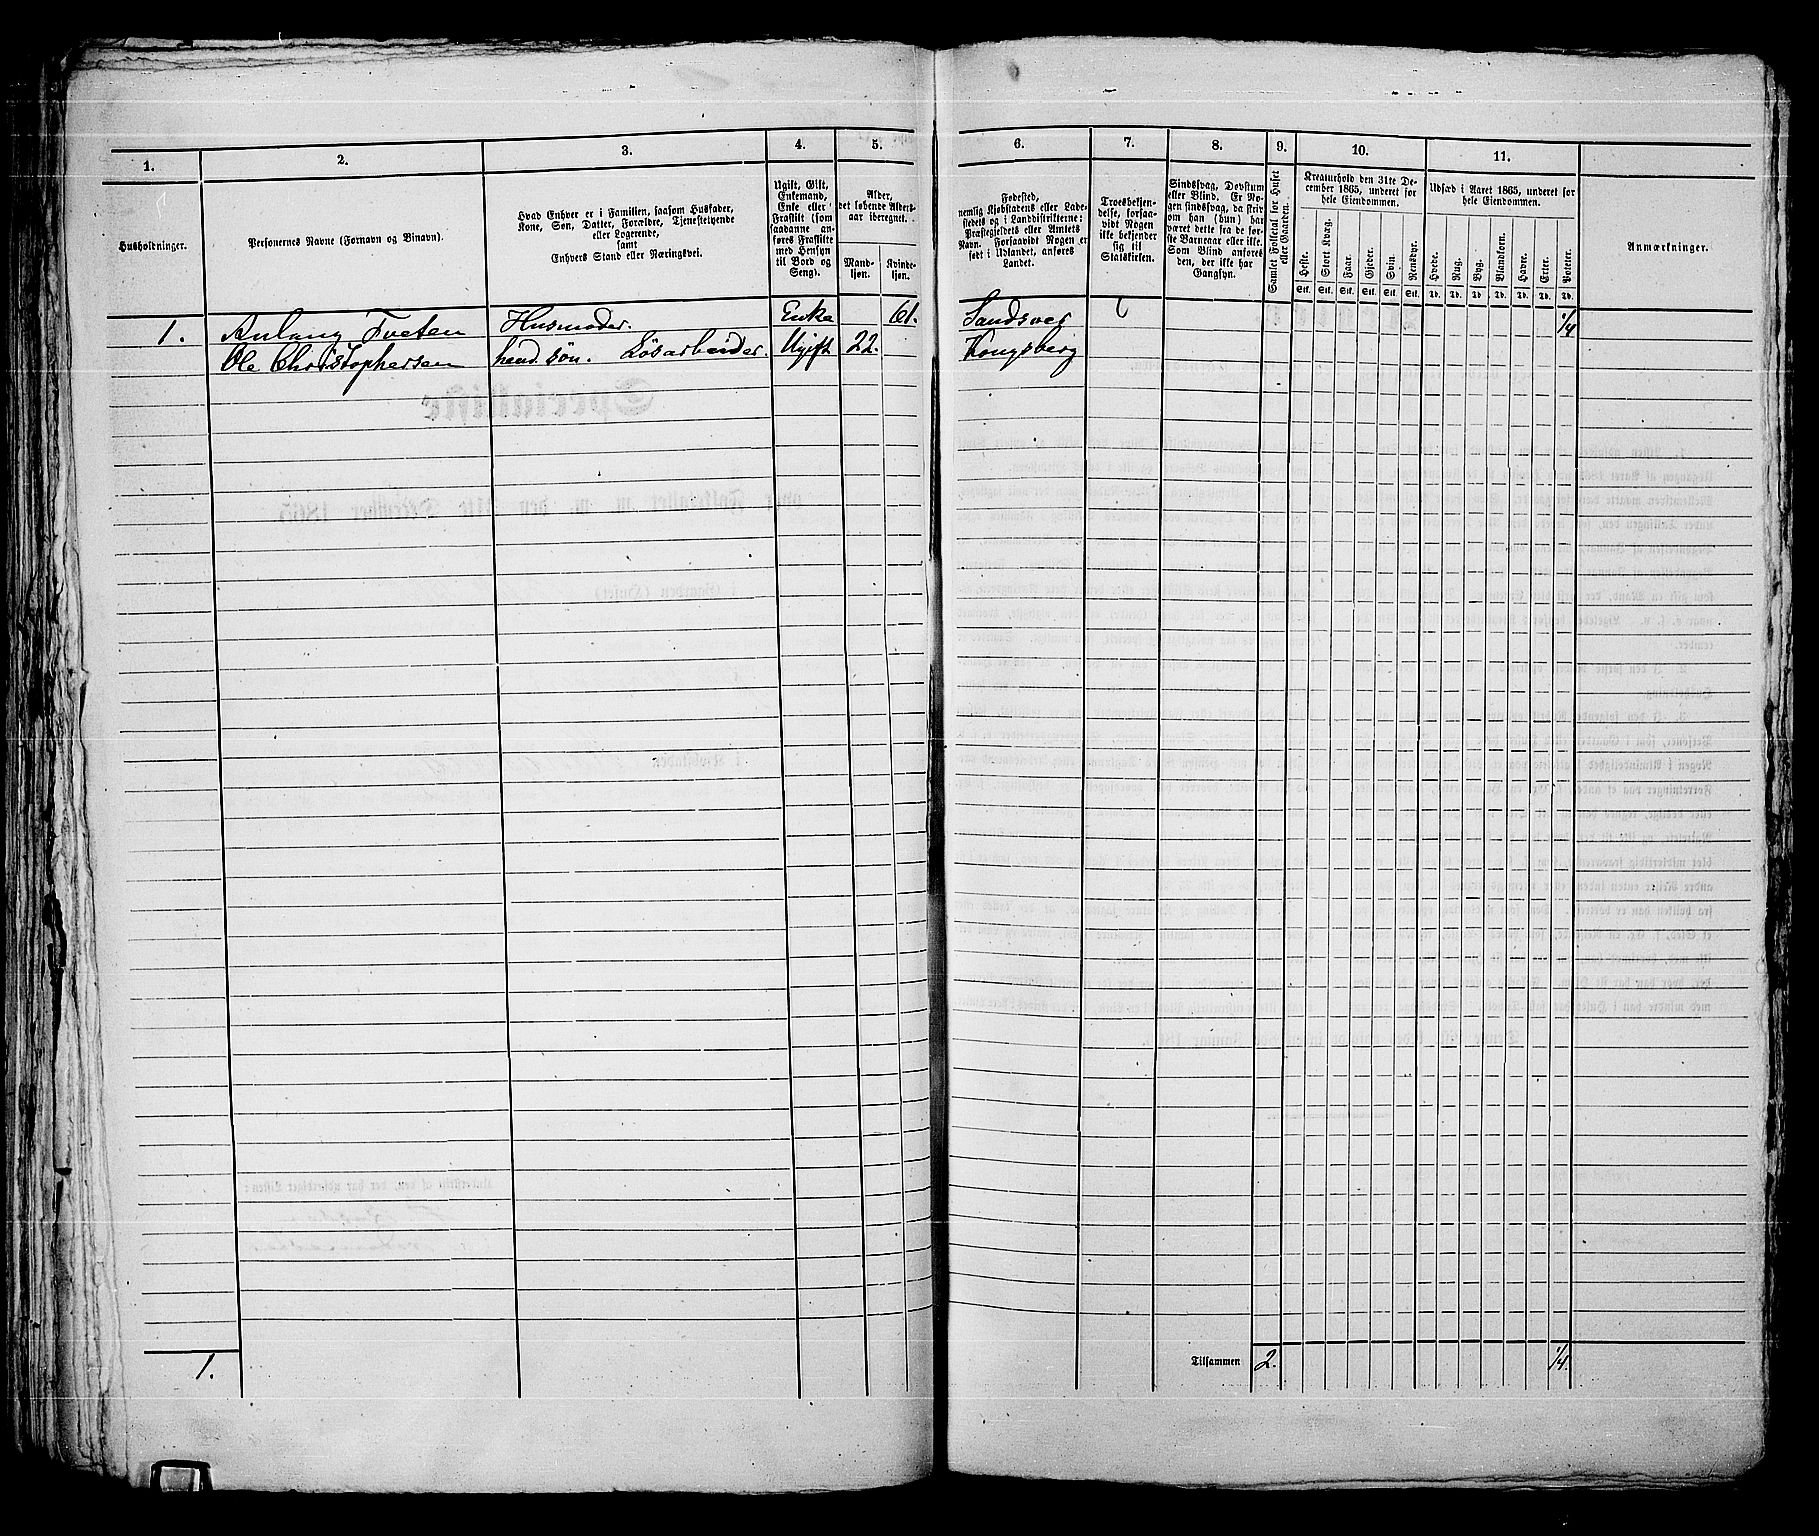 1.
2.
3.
4.
5.
6.
7.
8.
9.
10.
11.
Husholdninger.
Personernes Navne (Fornavn og Binavn).
Hvad Enhver er i Familien, saasom Husfader,
Kone, Søn, Datter, Forældre, Tjenestetyende
eller Logerende,
samt
Enhvers Stand eller Næringsvei.
Ugift, Gift,
Enkemand,
Enke eller
Fraskilt (som
saadanne an-
føres Fraskilte
med Hensyn
til Bord og
Seng).
Alder,
det løbende Alders-
aar iberegnet.
Mand-
kjøn.
Kvinde-
kjøn.
Fødested,
nemlig Kjøbstadens eller Lade-
stedets og i Landdistrikterne:
Præstegjeldets eller Amtets
Navn. Forsaavidt Nogen er
født i Udlandet, anføres
Landet.
Troesbekjen-
delse, forsaa-
vidt Nogen
ikke bekjender
sig til
Statskirken.
Sindssvag, Døvstum
eller Blind. Er No-
gen sindssvag, da skriv
om han (hun) har
været dette fra de før-
ste Barneaar eller ikke.
Som Blind anføres
den, der ikke har
Gangsyn.
Samlet Folketal for Huset
eller Gaarden.
Kreaturhold den 31te De-
cember 1865, underet for
hele Eiendommen.
Heste.
Stort Kvæg.
Faar.
Gjeder.
Svin.
Rensdyr.
Stk. Stk. Stk. Stk. Stk. Stk.
Udsæd i Aaret 1865, underet for
hele Eiendommen.
Hvede.
Rug.
Byg.
Blandkorn.
Havre.
Erter.
Poteter.
Td. Td. Td. Td. Td. Td. Td.
Anmærkninger.
1. Tveten Husmoder. Enke 61. Sandsver 1/4
Ole Christophersen hend. søn. Løsarbeider. Ugift 22. Kongsberg
1. Tilsammen 2. 1/4.